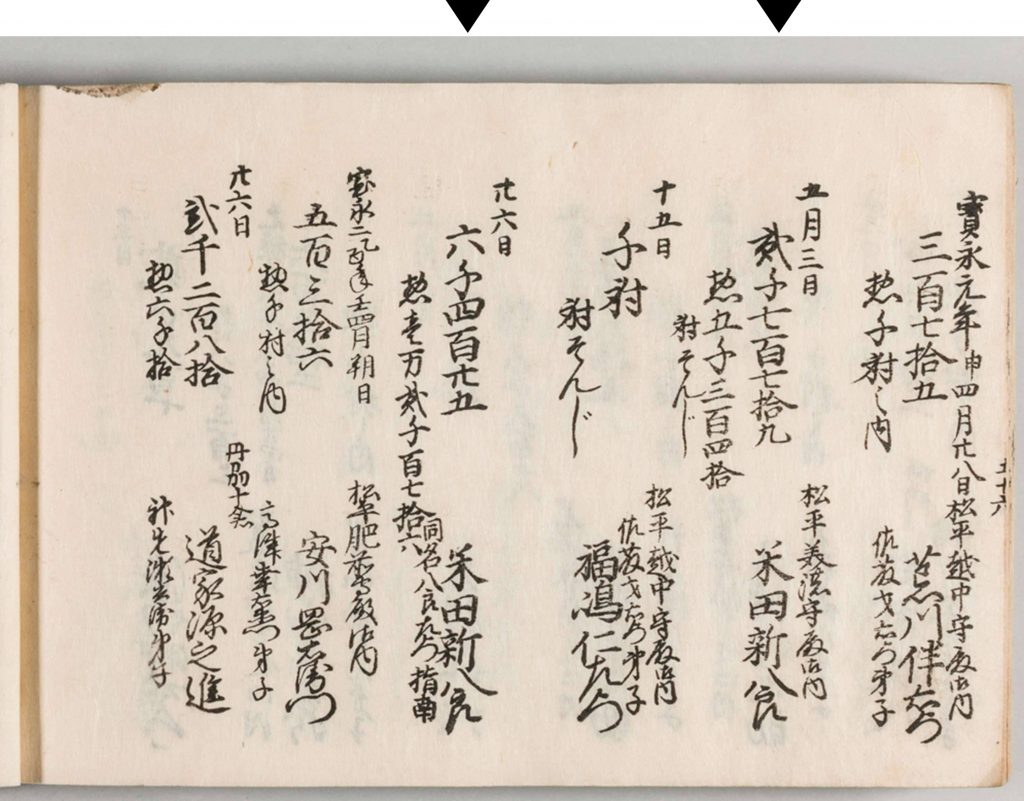 五十六
寶永元年申四月廿八日松平越中守殿御内
三百七拾五
惣千射之内
佐藤才右衛門弟子
荒川伴右衛門
五月三日
松平義濃守殿御内
貳千七百七拾九
米田新八郎
惣五千三百四拾
射そんじ
十五日
松平越中守殿御内
佐藤才右衛門弟子
千射
福嶋仁左衛門
射そんじ
廿六日
六千四百廿五
米田新八郎
惣壱万貳千百七拾六
同名八郎左衛門指南
寳永二乙酉年壬四月朔日
松平肥前守殿御内
五百三拾六
安川四郎右衛門
惣千射之内
高津 弟子
廿六日
丹羽十 
貳千二百八拾
道家源之進
惣六千拾
弟子